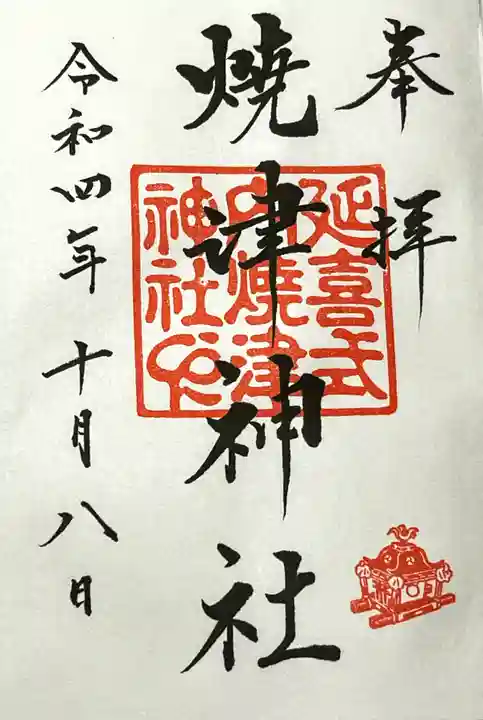 奉拝
燒津神社
延喜式
内燒津
神社
令和四年十月八日